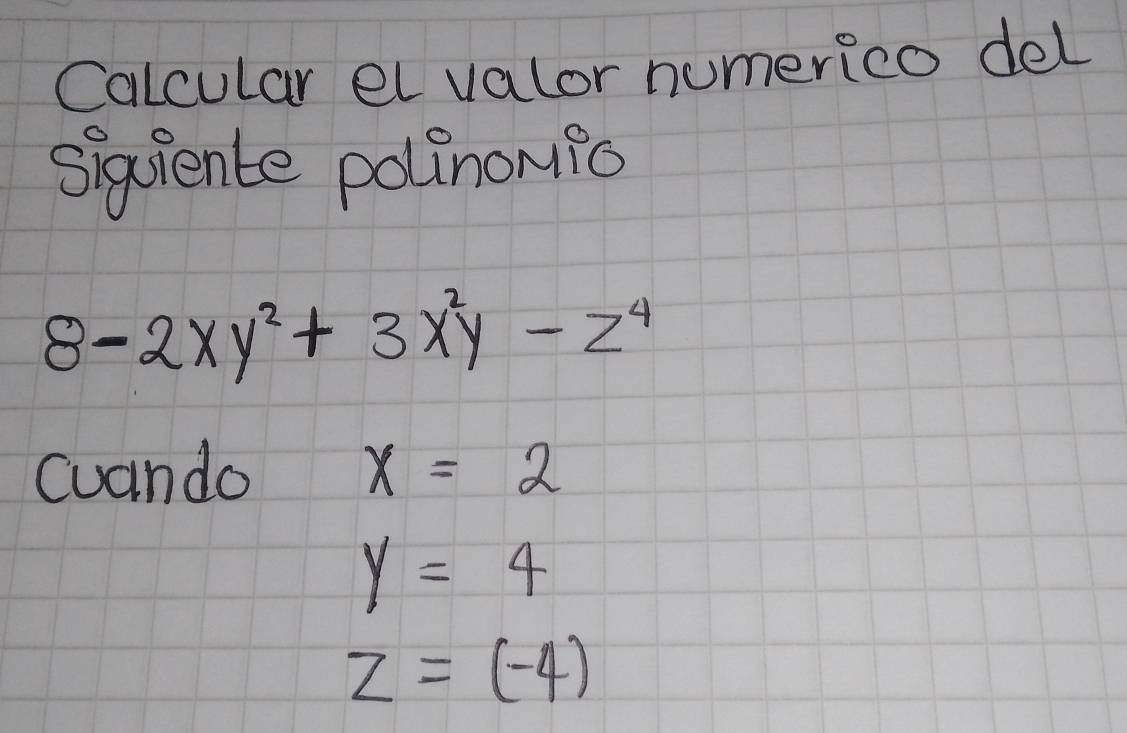 Calcular el valor numerico del
siguiente polinomio
8-2xy² + 3x²y - z⁴
Cuando x = 2
y = 4
z = (-4)